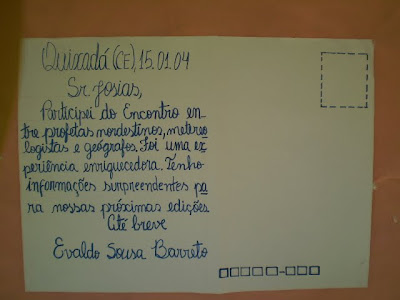 Quixadá (CE), 15.01.04
Sr. Josias,
Participei do Encontro en-
tre profetas nordestinos, metereo
logistas e geógrafos. Foi uma ex
periência enriquecedora. Tenho
informações surpreendentes pa
ra nossas próximas edições.
Até breve
Evaldo Sousa Barreto